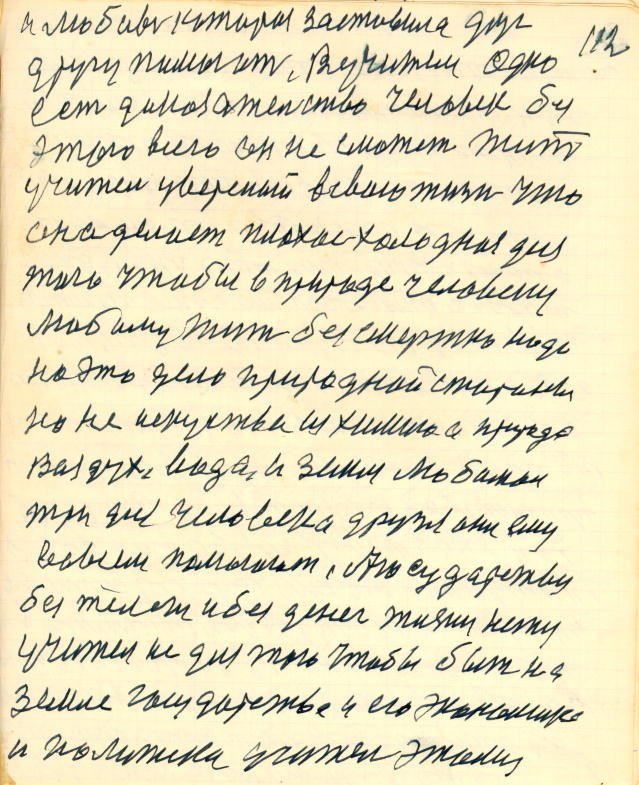 и любовь которая заставила друг 112
другу помогат, Вучители Одно
ест доказателство человек без
этого всего он не сможет жит
учител уверений в своего жизни что
она делает плохое-холодная для
того чтобы в природе человеку
любому жит безсмертно надо
но это дело природной стараны
но не искуства и химии а природа
Воздух, вода, и земля любимаи
три для человека друзя они ему
во всем помогают, А государству
без телеги и без денег жизни нету
учител не для того чтобы быт на
земле государства и его экономика
и политика учител этому